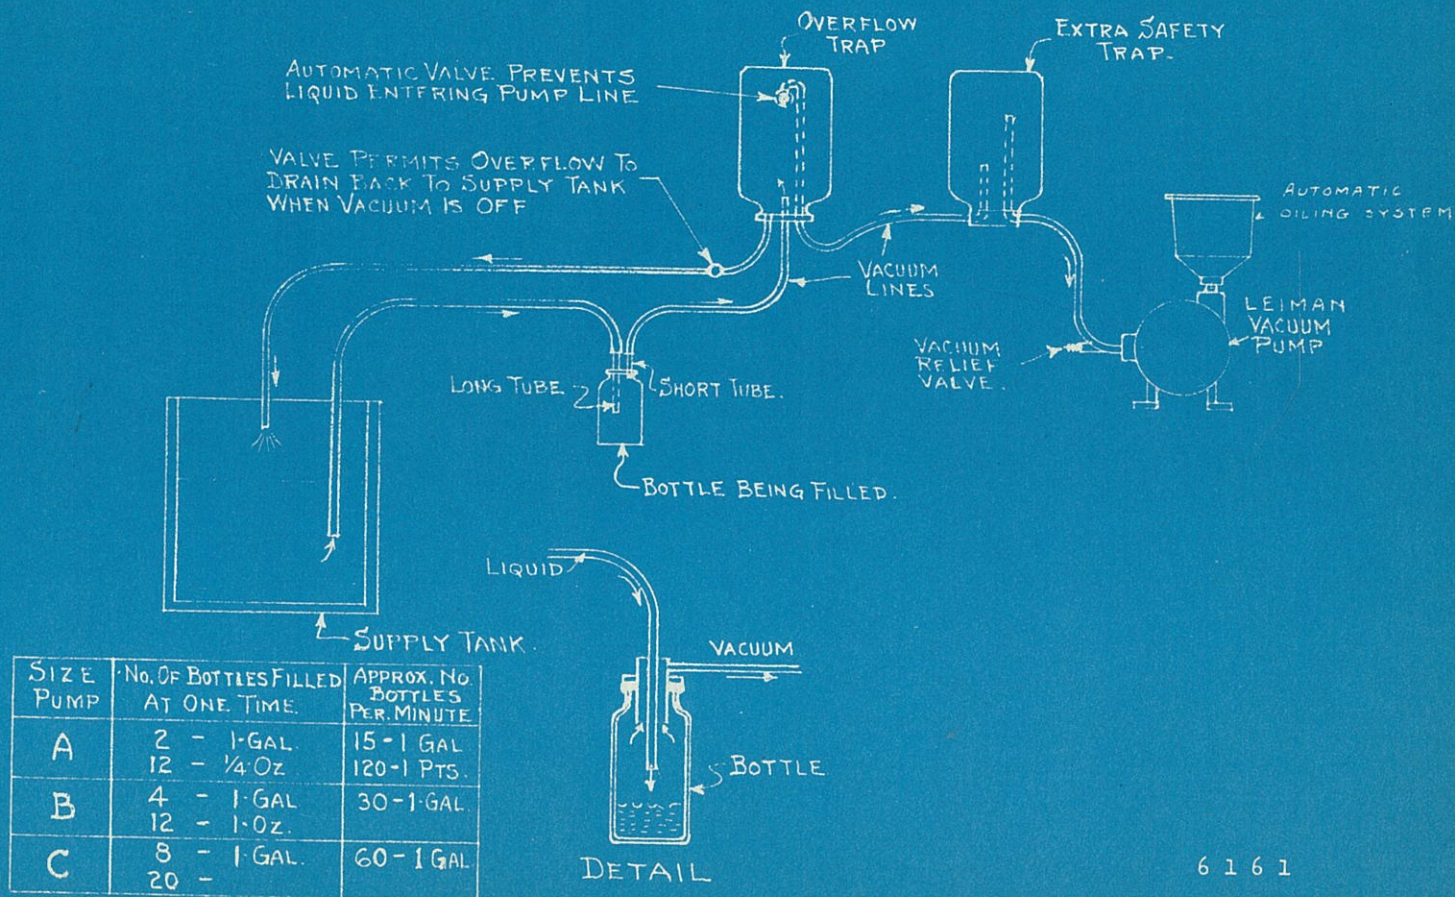 OVERFLOW
TRAP
EXTRA SAFETY
TRAP.
AUTOMATIC VALVE PREVENTS
LIQUID ENTERING PUMP LINE
VALVE PERMITS OVERFLOW TO
DRAIN BACK TO SUPPLY TANK
WHEN VACUUM IS OFF
AUTOMATIC
OILING SYSTEM
VACUUM
LINES
LEIMAN
VACUUM
PUMP
VACUUM
RELIEF
VALVE.
LONG TUBE
SHORT TUBE.
BOTTLE BEING FILLED.
LIQUID
SUPPLY TANK.
VACUUM
BOTTLE
DETAIL
SIZE PUMP | NO. OF BOTTLES FILLED AT ONE TIME. | APPROX. NO. BOTTLES PER. MINUTE
A | 2 - 1-GAL. | 15-1 GAL
12 - 1/4 OZ | 120-1 PTS.
B | 4 - 1-GAL | 30-1-GAL.
12 - 1-OZ.
C | 8 - 1-GAL. | 60-1 GAL
20 -
6161